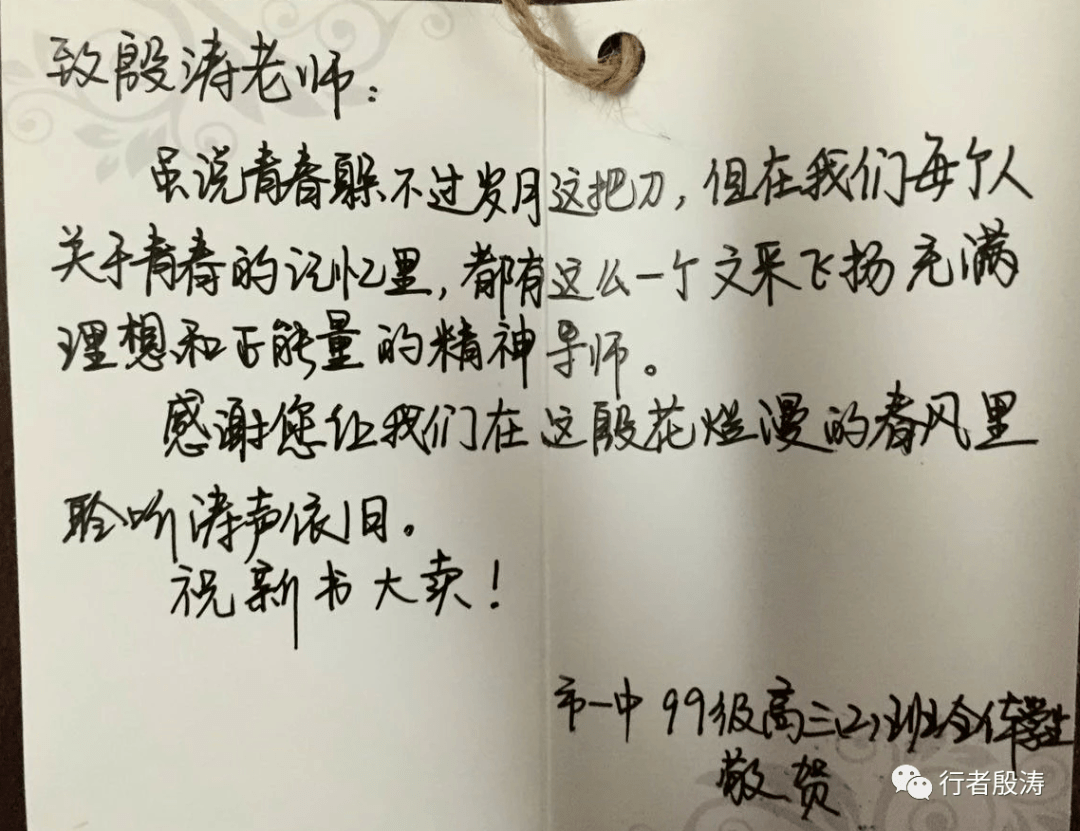 致殷涛老师：
虽说青春躲不过岁月这把刀，但在我们每个人
关于青春的记忆里，都有这么一个文采飞扬充满
理想和正能量的精神导师。
感谢您让我们在这殷花烂漫的春风里
聆听涛声依旧。
祝新书大卖！
市一中 99级高三(2)班全体学生
敬贺
行者殷涛